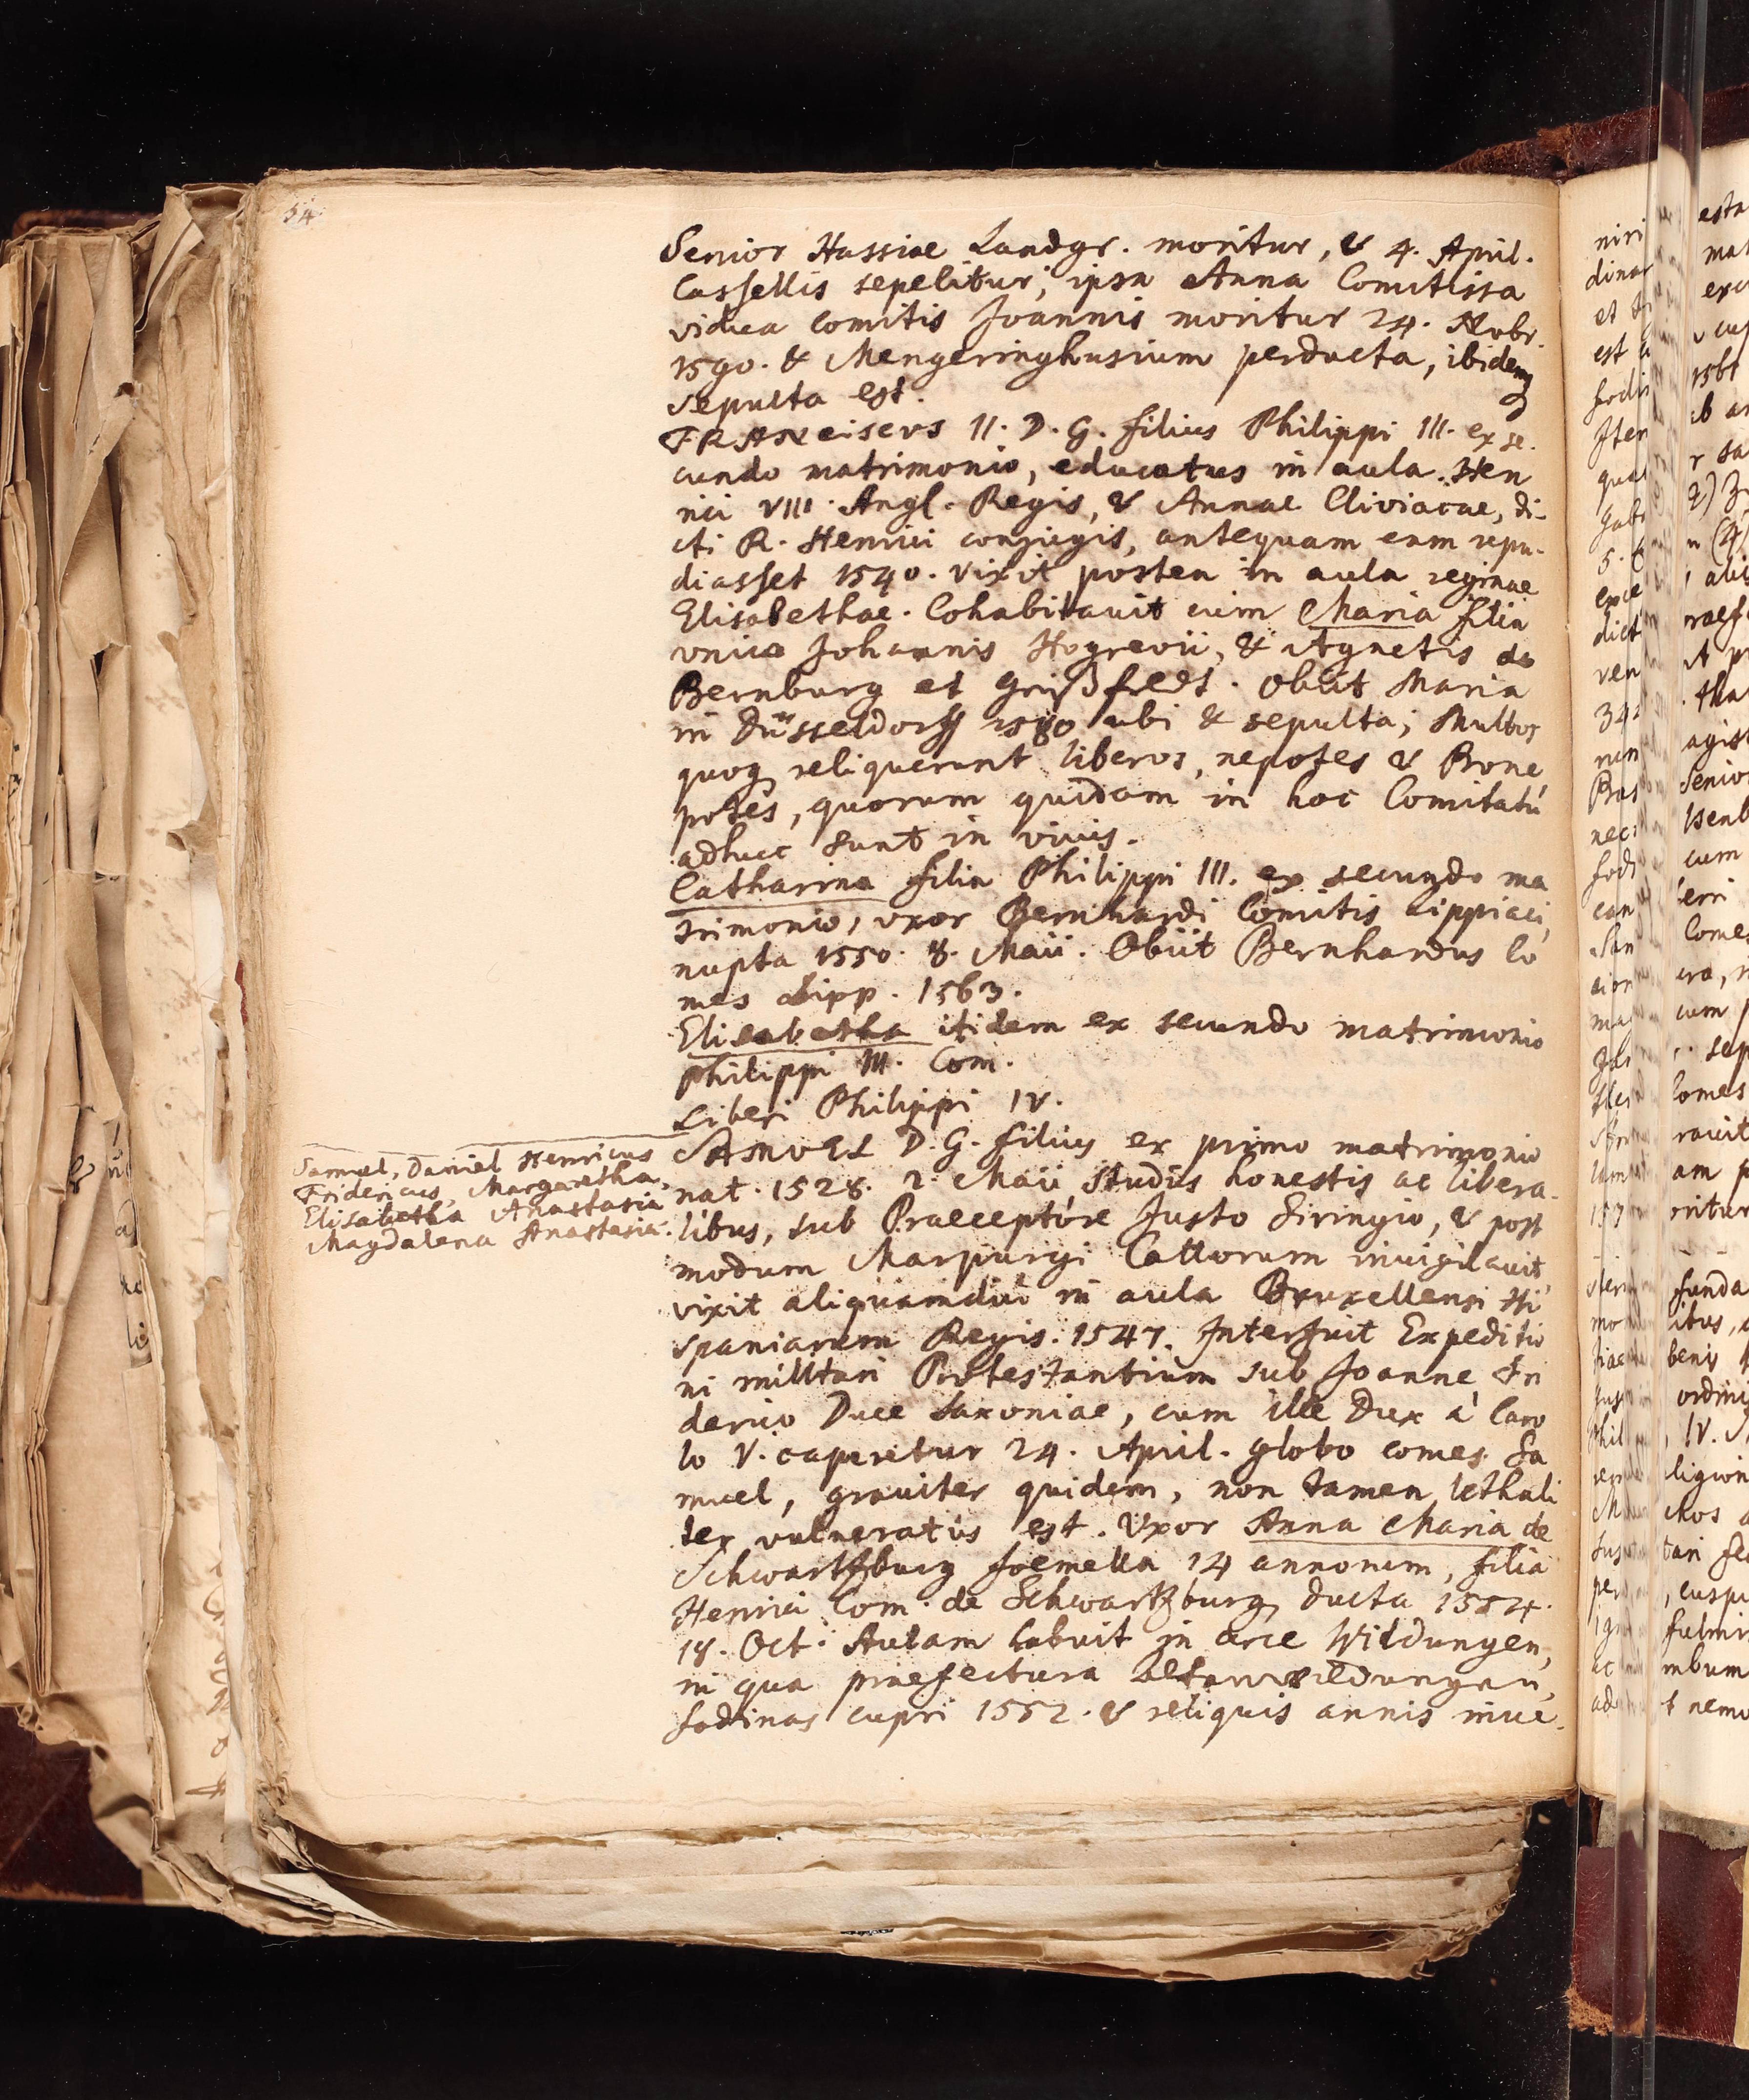 54
Senior Hassiae Landgr. moritur, & 4. April.
Cassellis sepelitur; ipsa Anna Comitissa
vidua Comitis Joannis moritur 24. Novbr.
1590. & Mengeringhusium perducta, ibidemq
sepulta est.
FRANCiscvs II. D. G. filius Philippi III. ex se-
cundo matrimonio, educatus in aula Hen
rici VIII. Angl. Regis, & Annae Cliviacae, di-
cti R. Henrici conjugis, antequam eam repu-
diasset 1540. vixit postea in aula reginae
Elisabethae. Cohabitauit cum Maria filia
vnica Johannis Hogrevii, & Agnetis de
Bernburg et Grißfredt. Obiit Maria
in Düsseldorff 1580 ubi & sepulta; Multos
quoq reliquerunt liberos, nepotes & Prone
potes, quorum quidam in hoc Comitatú
adhuc sunt in viuis.
Catharina filia Philippi III. ex secundo ma
trimonio, vxor Bernhardi Comitis Lippiaci,
nupta 1550. 8. Maii. Obiit Bernhardus Co
mes Lipp. 1563.
Elisabetha itidem ex secundo matrimonio
Philippi III. Com.
Liberi Philippi IV.
Samuel, Daniel Henricus
Fridericus, Margaretha,
Elisabetha Anastasia
Magdalena Anastasia.
SAMVEL D. G. filius ex primo matrimonio
nat. 1528. 2. Maii, studiis honestis ac libera-
libus, sub Praeceptóre Justo Siringio, & post
modum Marpurgi Cattorum inuigilauit,
vixit aliquamdiu in aula Bruxellensi Hi
spaniarum Regis. 1547. Interfuit Expeditio
ni militari Protestantium sub Joanne Fri
derico Duce Saxoniae, cum ille Dux á Caro
lo V. caperetur 24. April. globo comes Sa
muel, grauiter quidem, non tamen lethali
ter vulneratus est. Vxor Anna Maria de
Schwartzburg foemella 14 annorum, filia
Henrici Com. de Schwartzburg, ducta 1554.
18. Oct. Aulam habuit in arce Wildungen,
in qua praefectura alten wildungen,
fodinas cupri 1552. & reliquis annis inue-